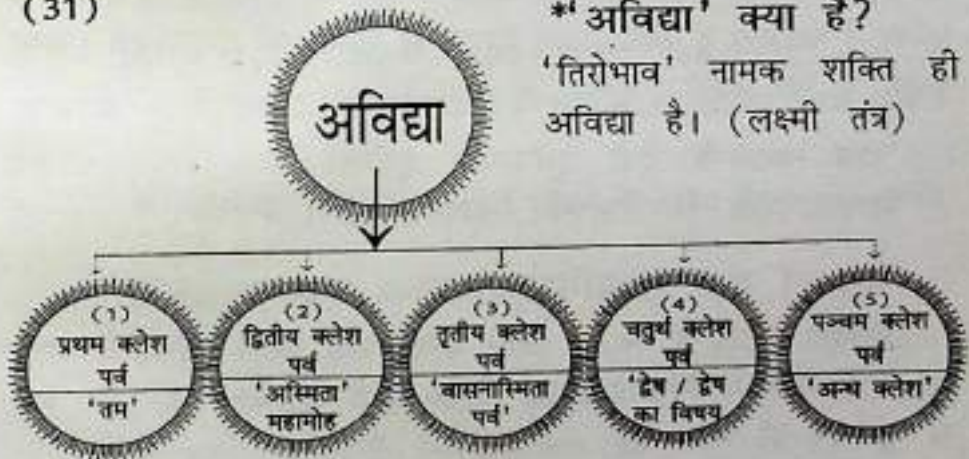 (31)
*'अविद्या' क्या है?
'तिरोभाव' नामक शक्ति ही
अविद्या है। (लक्ष्मी तंत्र)
अविद्या
(1)
प्रथम क्लेश
पर्व
'तम'
(2)
द्वितीय क्लेश
पर्व
'अस्मिता'
महामोह
(3)
तृतीय क्लेश
पर्व
'वासनास्मिता
पर्व'
(4)
चतुर्थ क्लेश
पर्व
'द्वेष / द्वेष
का विषय
(5)
पञ्चम क्लेश
पर्व
'अन्ध क्लेश'